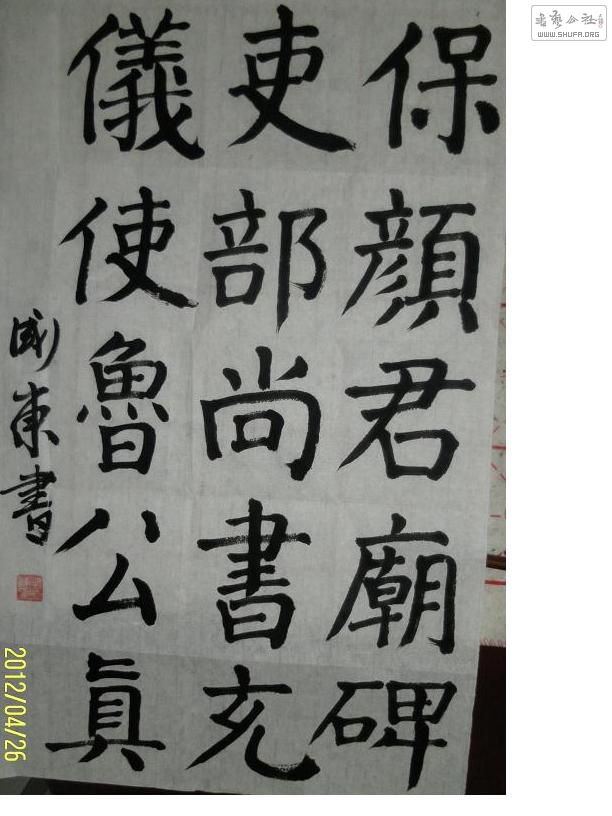 保顔君廟碑
吏部尚書充
儀使魯公眞
東書
2012/04/26
書藝公社
WWW.SHUFA.ORG